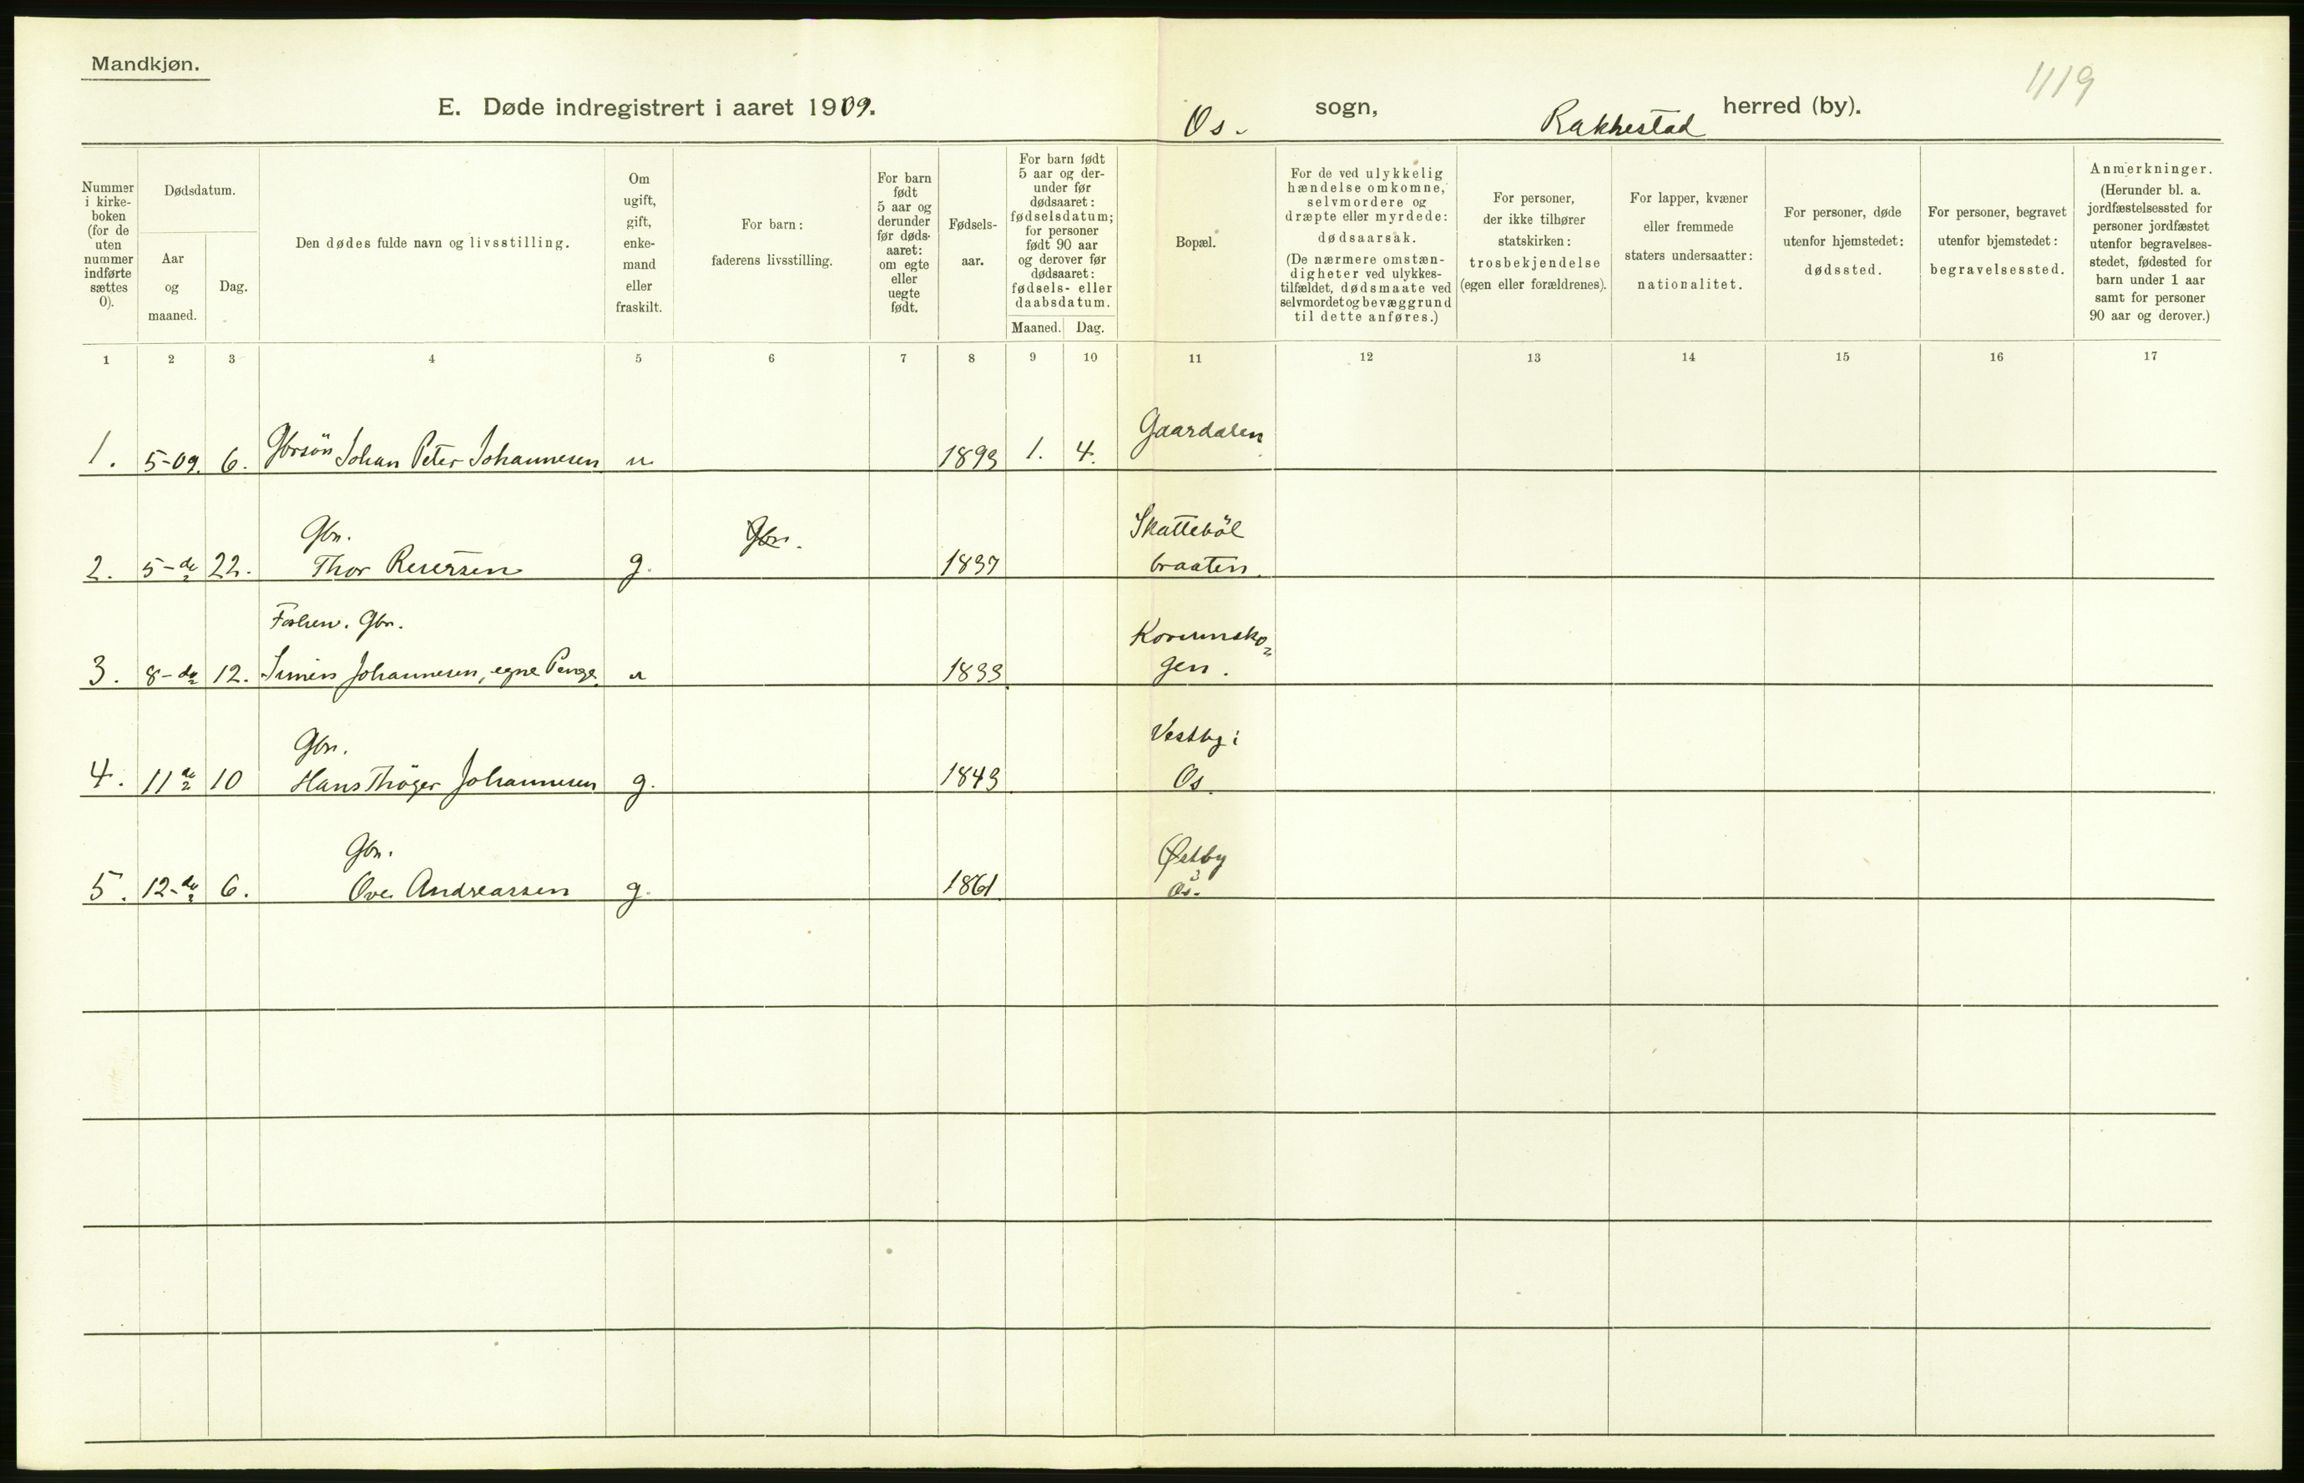 Mandkjøn.
1119
E. Døde indregistrert i aaret 1909.
Os. sogn, Rakkestad herred (by).
Nummer
i kirke-
boken
(for de
uten
nummer
indførte
sættes
0).
Dødsdatum.
Aar
og
maaned.
Dag.
Den dødes fulde navn og livsstilling.
Om
ugift,
gift,
enke-
mand
eller
fraskilt.
For barn:
faderens livsstilling.
For barn
født
5 aar og
derunder
før døds-
aaret:
om egte
eller
uegte
født.
Fødsels-
aar.
For barn født
5 aar og der-
under før
dødsaaret:
fødselsdatum;
for personer
født 90 aar
og derover før
dødsaaret:
fødsels- eller
daabsdatum.
Maaned. Dag.
Bopæl.
For de ved ulykkelig
hændelse omkomne,
selvmordere og
dræpte eller myrdede:
dødsaarsak.
(De nærmere omstæn-
digheter ved ulykkes-
tilfældet, dødsmaate ved
selvmordet og bevæggrund
til dette anføres.)
For personer,
der ikke tilhører
statskirken:
trosbekjendelse
(egen eller forældrenes).
For lapper, kvæner
eller fremmede
staters undersaatter:
nationalitet.
For personer, døde
utenfor hjemstedet:
dødssted.
For personer, begravet
utenfor bjemstedet:
begravelsessted.
Anmerkninger.
(Herunder bl. a.
jordfæstelsessted for
personer jordfæstet
utenfor begravelses-
stedet, fødested for
barn under 1 aar
samt for personer
90 aar og derover.)
1 2 3 4 5 6 7 8 9 10 11 12 13 14 15 16 17
Gaardalen
1. 5-09. 6. Gbrsön Johan Peter Johannesen u 1893 1. 4.
Gbr. Gbr. Skatteböl
2. 5-do 22. Thor Reiersen g. 1837 braaten.
Gbr. 
3. 8-do 12. Johannesen, egne Penge. u 1833. gen.
Gbr. Vestby i
4. 11 do 10 Hans Thöger Johannesen g. 1843 Os.
Gbr. Østby
5. 12-do 6. Ove Andreassen g. 1861 Os.